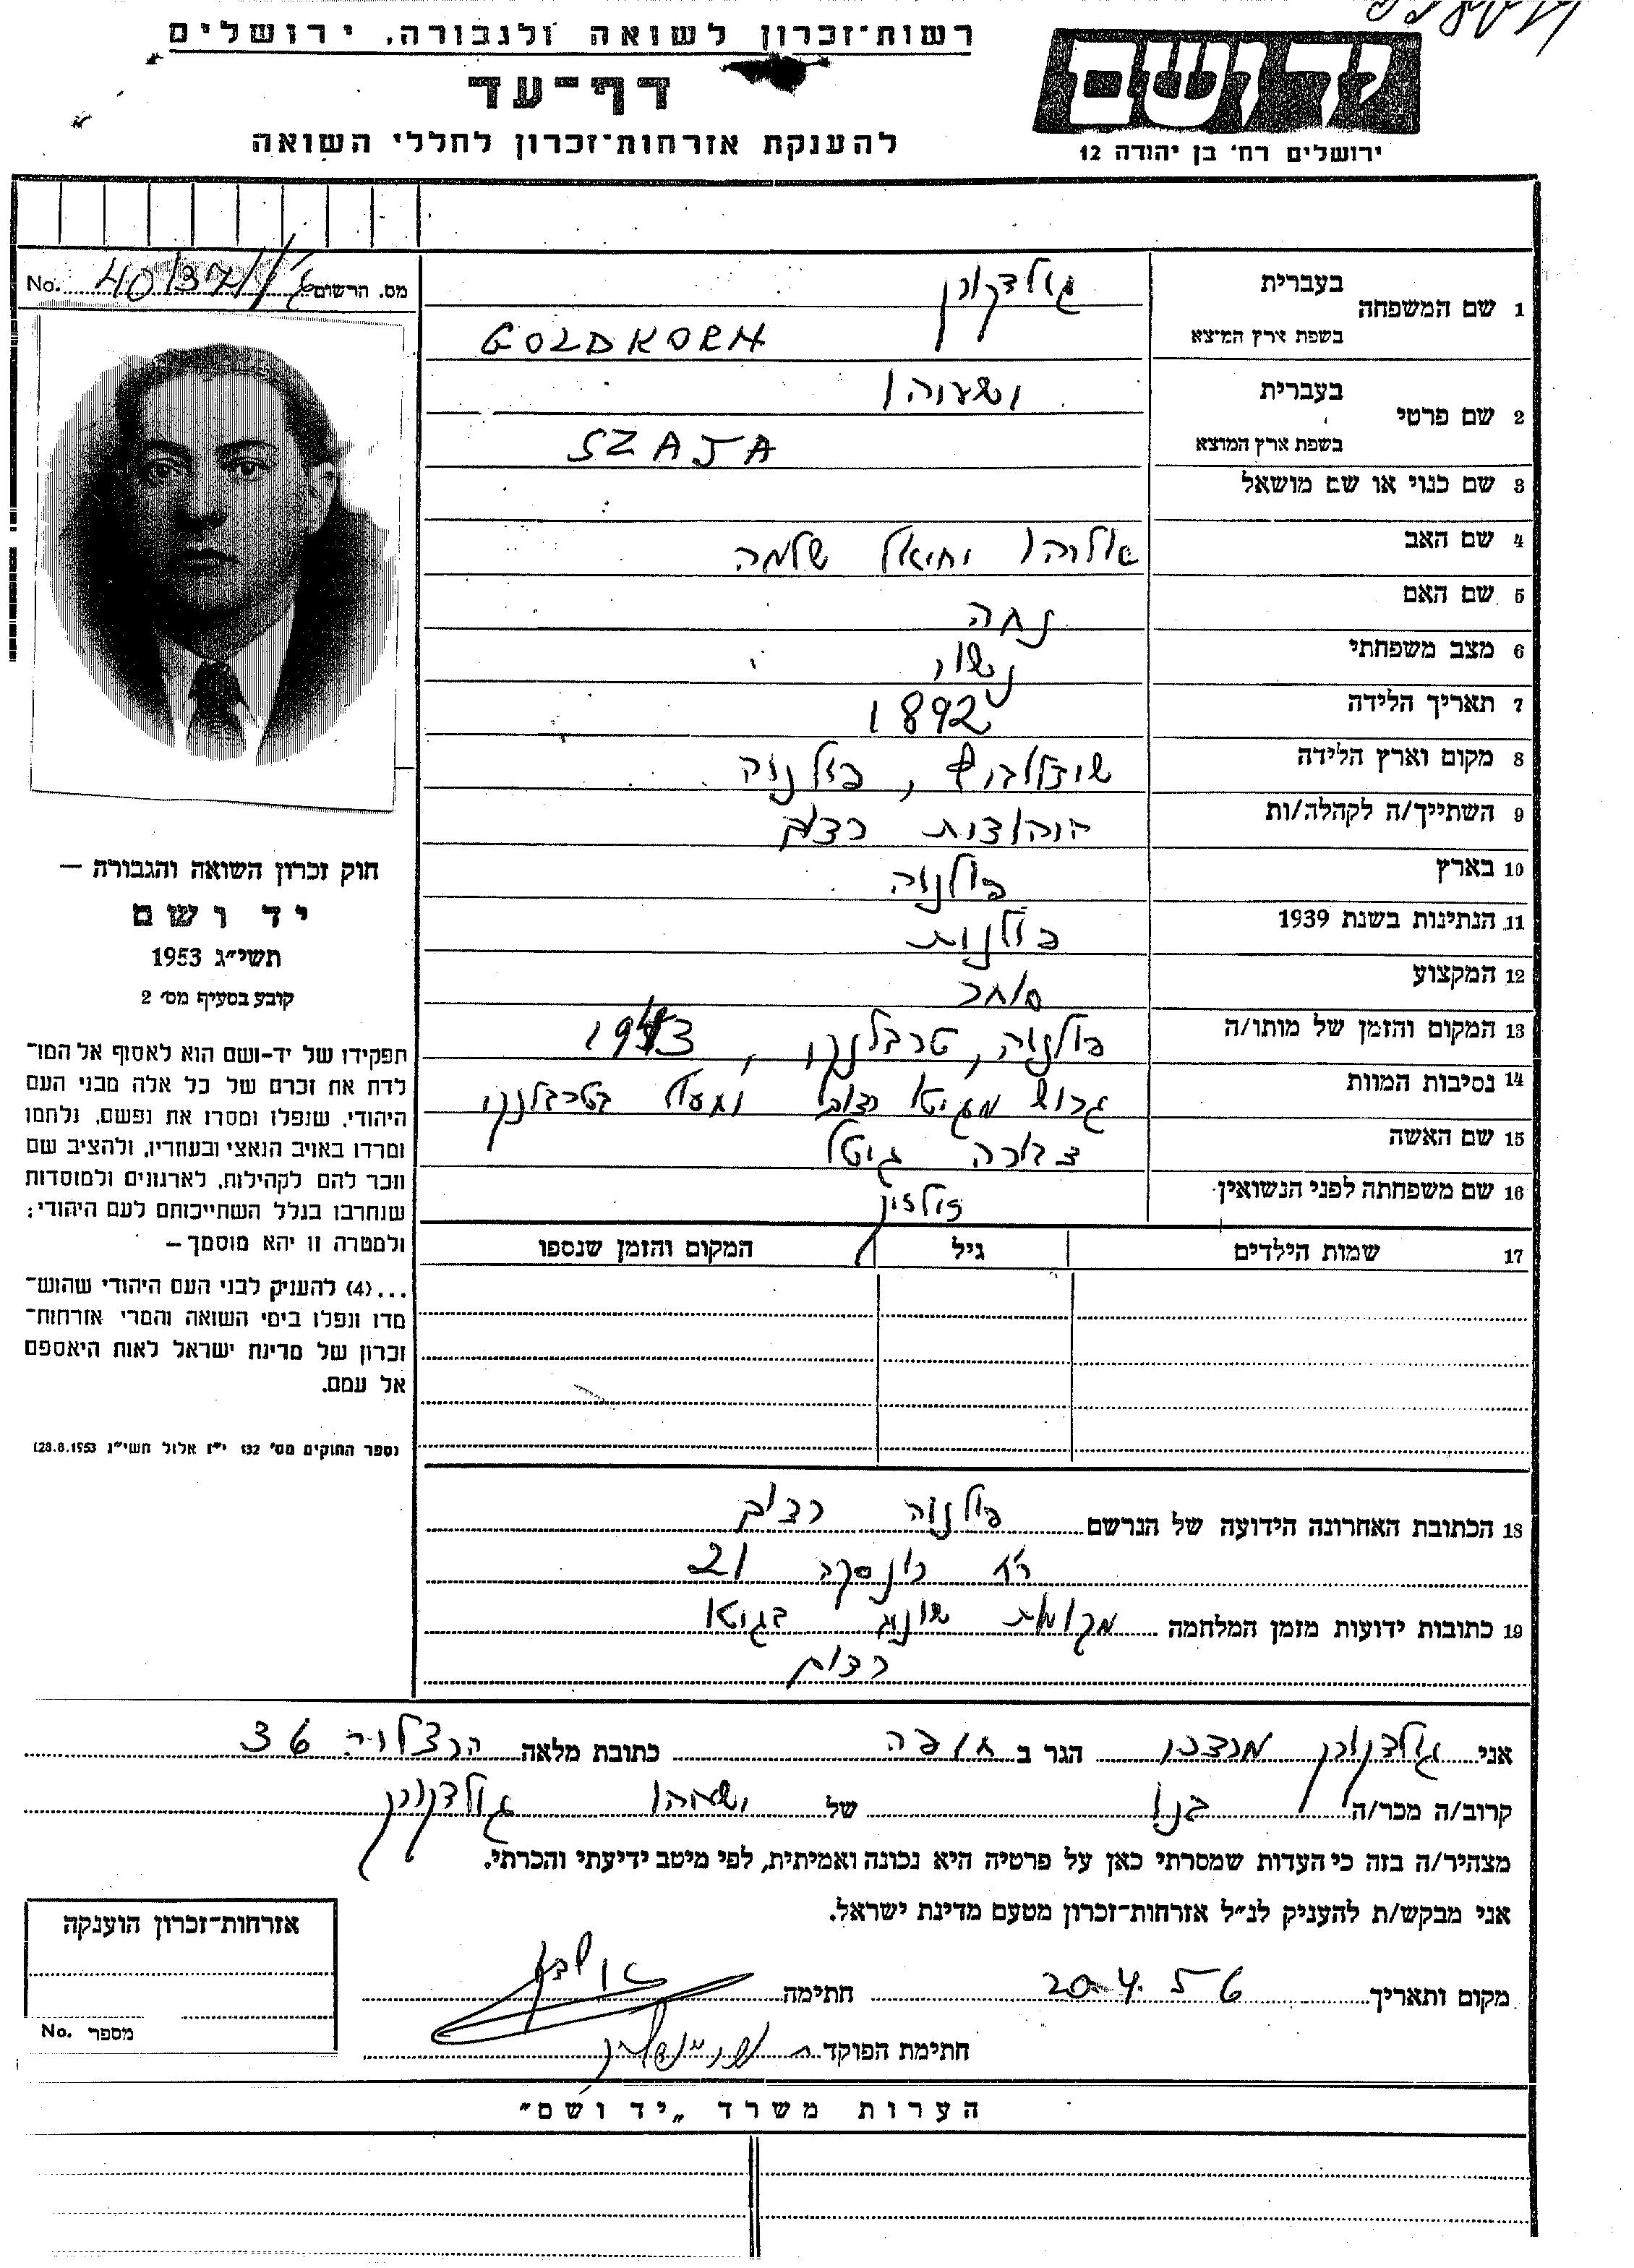 רשות־זכרון לשואה ולגבורה, ירושלים
דף־עד
להענקת אזרחות־זכרון לחללי השואה
יד ושם
ירושלים רח' בן יהודה 12
מס. הרשום 40/371/ No.
1 שם המשפחה בעברית גולדקורן
בשפת ארץ המוצא GOLDKORN
2 שם פרטי בעברית ישעיהו
בשפת ארץ המוצא SZAJA
3 שם כנוי או שם מושאל
4 שם האב אליהו יחיאל שלמה
5 שם האם נחה
6 מצב משפחתי נשוי
7 תאריך הלידה 1892
8 מקום וארץ הלידה שידלוביץ, פולניה
9 השתייך/ה לקהלה/ות היהודית רדום
10 בארץ פולניה
11 הנתינות בשנת 1939 פולנית
12 המקצוע סוחר
13 המקום והזמן של מותו/ה פולניה, טרבלינקי, 1943
14 נסיבות המוות גרוש מגיטו רדום בטרבלינקי
15 שם האשה דבורה גיטל
16 שם משפחתה לפני הנשואין
17 שמות הילדים גיל המקום והזמן שנספו
חוק זכרון השואה והגבורה —
יד ושם
תשי״ג 1953
קובע בסעיף מס' 2
תפקידו של יד-ושם הוא לאסוף אל המו־
לדת את זכרם של כל אלה מבני העם
היהודי, שנפלו ומסרו את נפשם, נלחמו
ומרדו באויב הנאצי ובעוזריו, ולהציב שם
וזכר להם לקהילות, לארגונים ולמוסדות
שנחרבו בגלל השתייכותם לעם היהודי;
ולמטרה זו יהא מוסמך —
...(4) להעניק לבני העם היהודי שהוש־
מדו ונפלו בימי השואה והמרי אזרחות־
זכרון של מדינת ישראל לאות היאספם
אל עמם.
(ספר החוקים מס' 132 י״ז אלול תשי״ג 28.8.1953)
18 הכתובת האחרונה הידועה של הנרשם פולניה רדום
רח' 21
19 כתובות ידועות מזמן המלחמה מקומות שונים בגיטו
רדום
אני גולדקורן מרדכי הגר ב חיפה כתובת מלאה הרצליה 36
קרוב/ה מכר/ה בנו של ישעיהו גולדקורן
מצהיר/ה בזה כי העדות שמסרתי כאן על פרטיה היא נכונה ואמיתית, לפי מיטב ידיעתי והכרתי.
אני מבקש/ת להעניק לנ״ל אזרחות־זכרון מטעם מדינת ישראל.
מקום ותאריך 20.4.56 חתימה
חתימת הפוקד
אזרחות־זכרון הוענקה
מספר No.
הערות משרד „יד ושם״